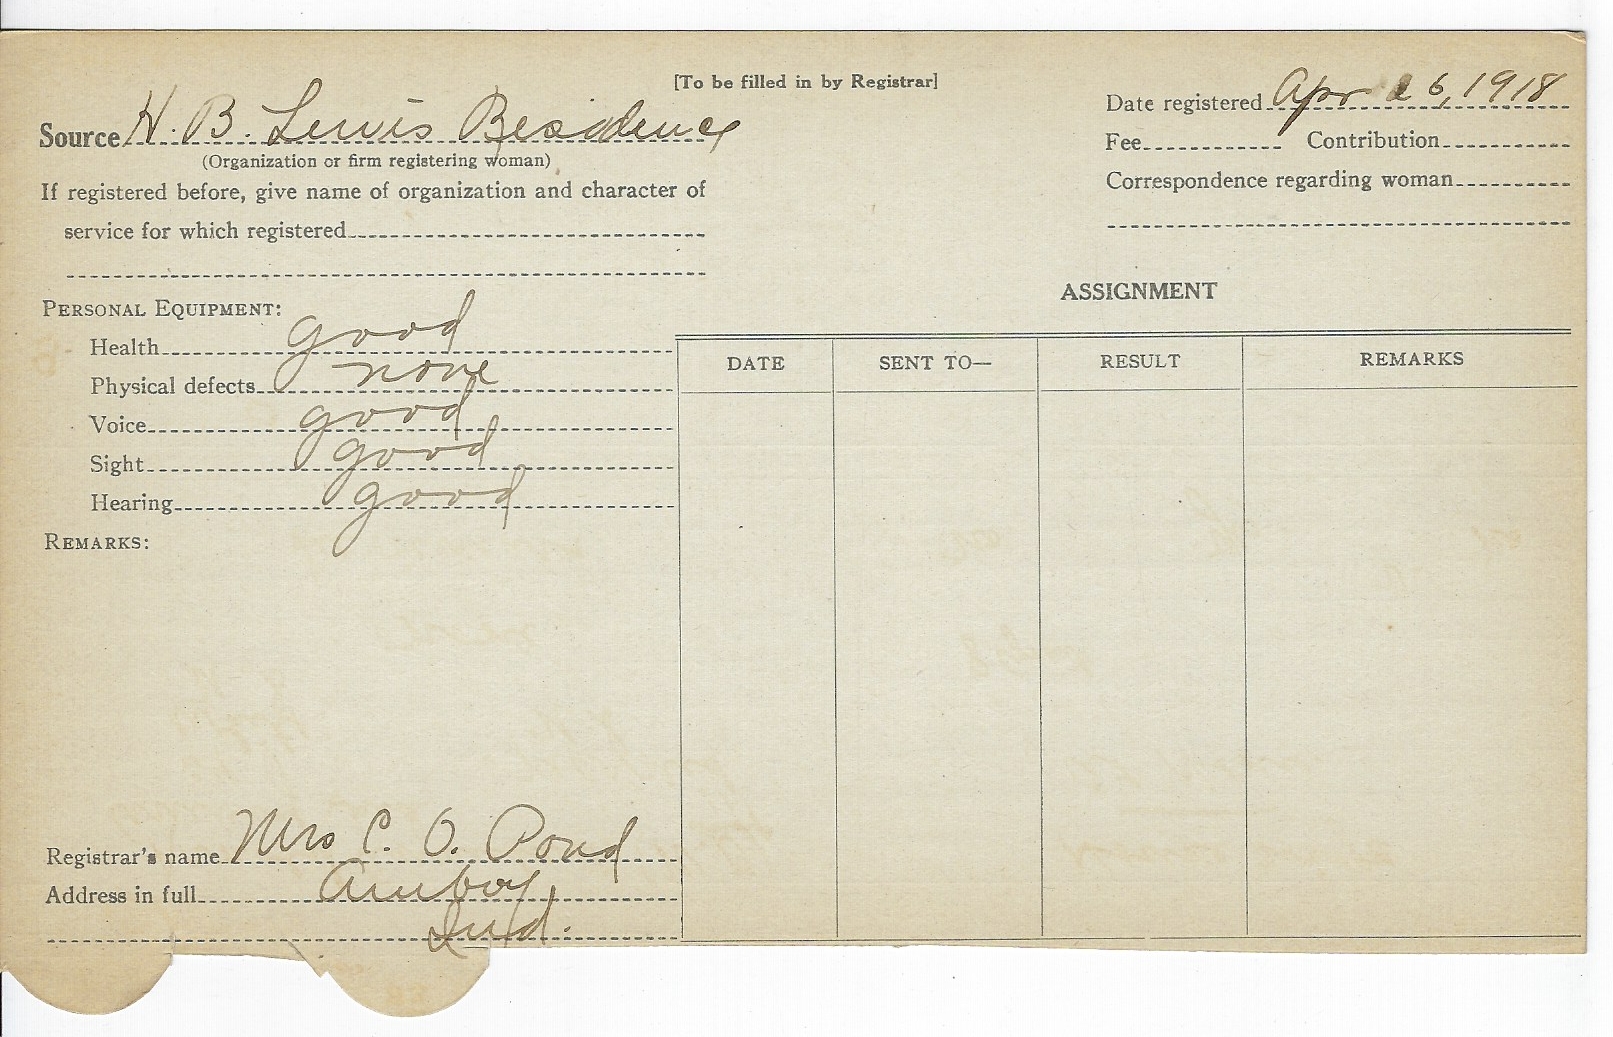 [To be filled in by Registrar]
Source H. B. Lewis Residence
(Organization or firm registering woman)
If registered before, give name of organization and character of
service for which registered
Date registered Apr 26, 1918
Fee Contribution
Correspondence regarding woman
PERSONAL EQUIPMENT:
Health good
Physical defects none
Voice good
Sight good
Hearing good
REMARKS:
Registrar's name Mrs C. O. Pond
Address in full Amboy
Ind.
ASSIGNMENT
DATE SENT TO— RESULT REMARKS